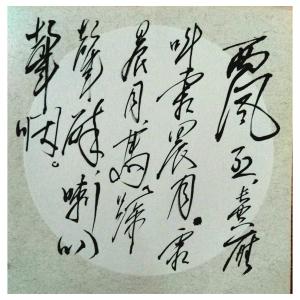 西风烈，長空雁
叫霜晨月。霜
晨月，馬蹄
聲碎，喇叭
聲咽。